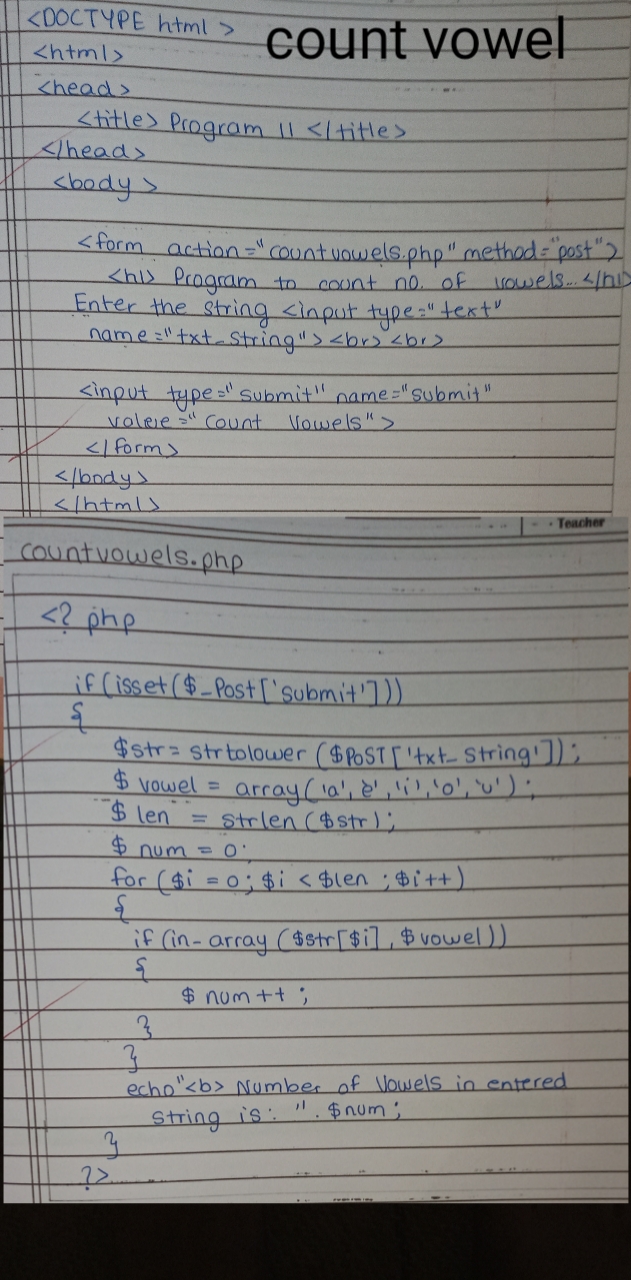 <DOCTYPE html >
count vowel
<html>
<head>
<title> Program 11 </title>
</head>
<body >
<form action="countvowels.php" method="post">
<h1> Program to count no. of vowels... </h1>
Enter the string <input type="text"
name="txt_string"> <br> <br>
<input type="submit" name="submit"
valeie="Count Vowels">
</form>
</body>
</html>
Teacher
countvowels.php
<? php
if (isset ($_Post['submit']))
{
$str = strtolower ($POST['txt_string']);
$ vowel = array('a','e','i','o','u');
$ len = strlen ($str);
$ num = 0;
for ($i = 0; $i < $len ; $i++)
{
if (in-array ($str[$i], $vowel))
{
$ num++ ;
}
}
echo"<b> Number of Vowels in entered
string is: ". $num;
}
?>